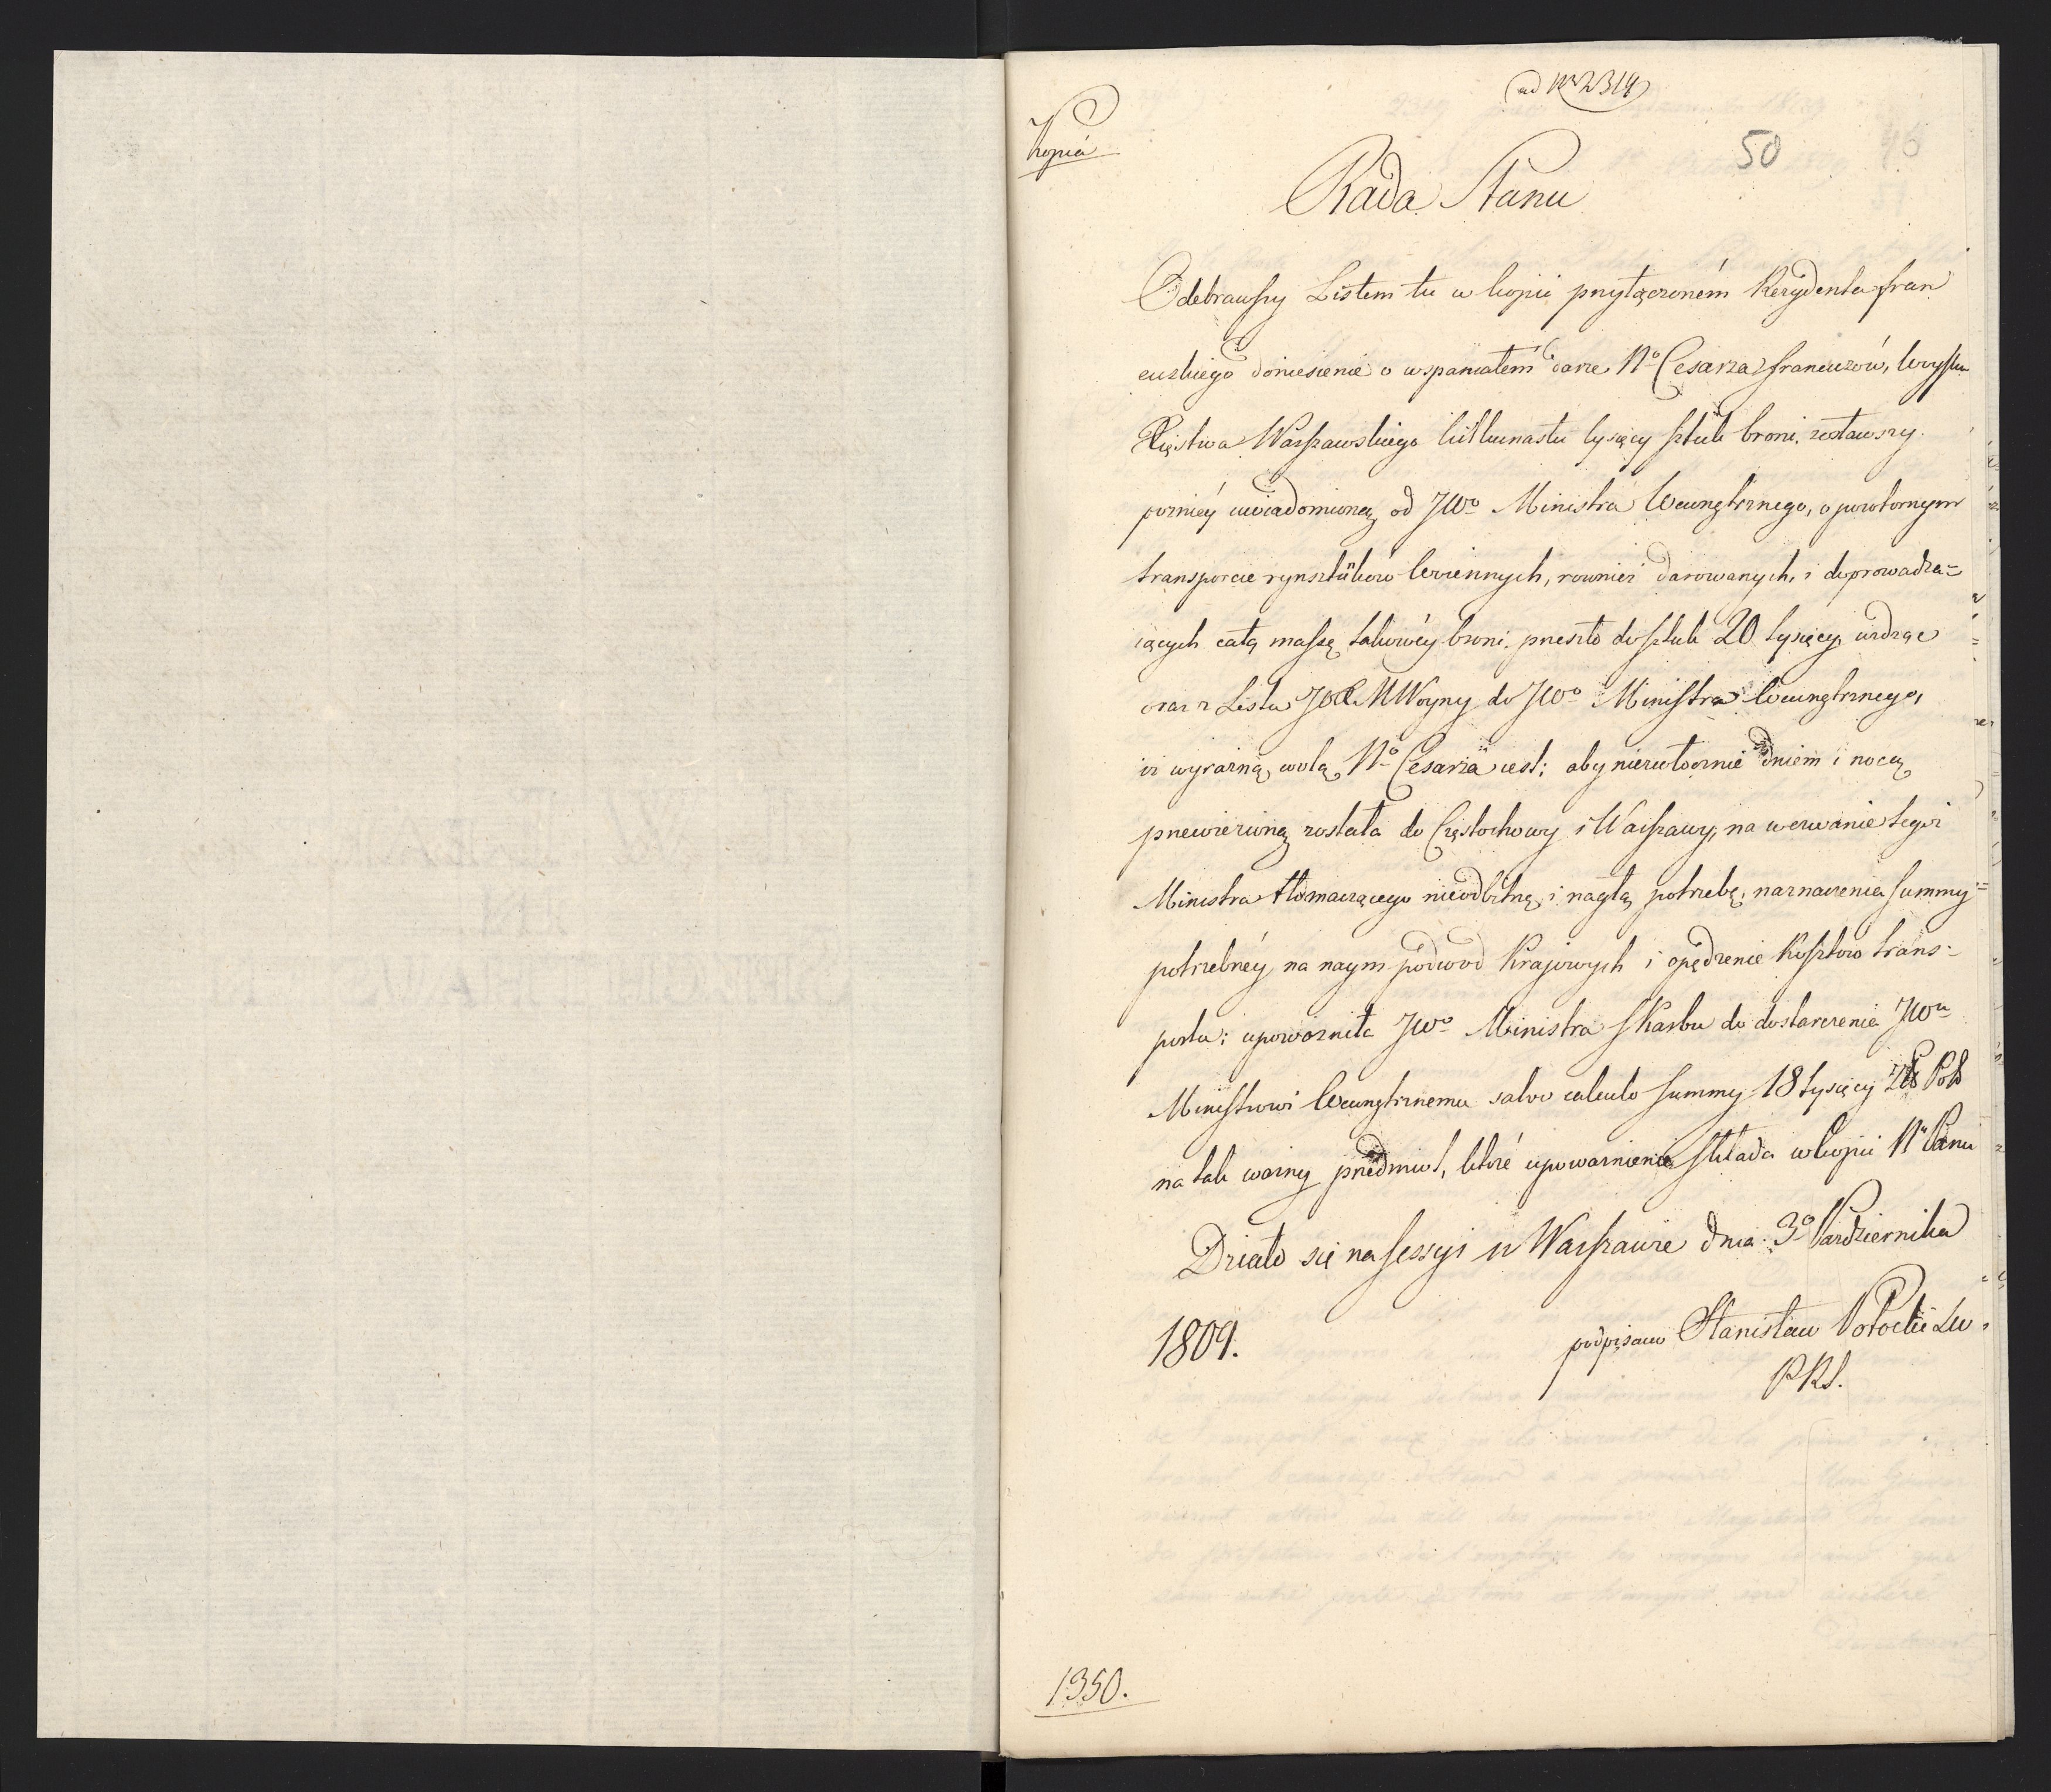 ad Nr 2314
Kopia
50
46
Rada Stanu
Odebrawszy Listem tu w kopii przyłączoném Rezydenta fran
cuzkiego doniesienie o wspaniałém darze No Cesarza francuzów, Woysku
Xięstwa Warszawskiego kilkunastu tysięcy sztuk broni, zostawszy
pozniey uwiadomioną od JWo Ministra Wewnętrznego, o powtornym
transporcie rynsztuków Woiennych, rownież darowanych, i doprowadza=
iących całą massę takowéy broni, przeszło do sztuk 20 tysięcy, widząc
oraz z Listu JW. Woyny do JWo Ministra Wewnętrznego,
iż wyrazną wolą No Cesarza iest; aby niezwłocznie dniem i nocą
przewiezioną została do Częstochowy i Warszawy, na wezwanie tegoż
Ministra tłomaczącego nieodbitną i nagłą potrzebę, naznaczenia summy
potrzebnéy na naym podwod Krajowych i opędzenie Kosztow trans=
portu; upowazniła JWo Ministra Skarbu do dostarczenia JWu
Ministrowi Wewnętrznemu salvo calculo summy 18 tysięcy Zł Pol
na tak wazny przedmiot, które upowaznienie składa w kopii No Panu
Działo się na sessyi w Warszawie dnia 3o Pazdziernika
1809.
podpisano Stanisław Potocki
PRS.
1350.